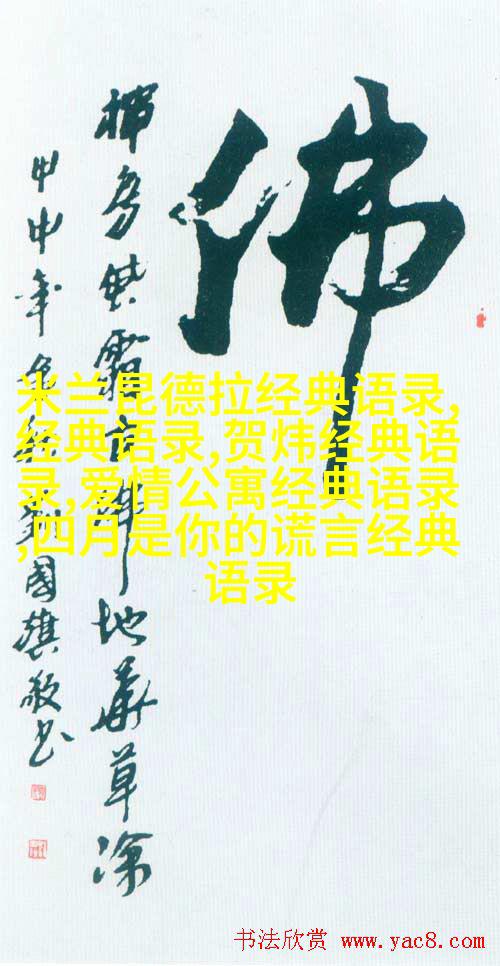 佛
地華草深
甲申年國旗敬书
米兰昆德拉经典语录,
经典语录,贺炜经典语
录,爱情公寓经典语录
,四月是你的谎言经典
语录
书法欣赏 www.yac8.com